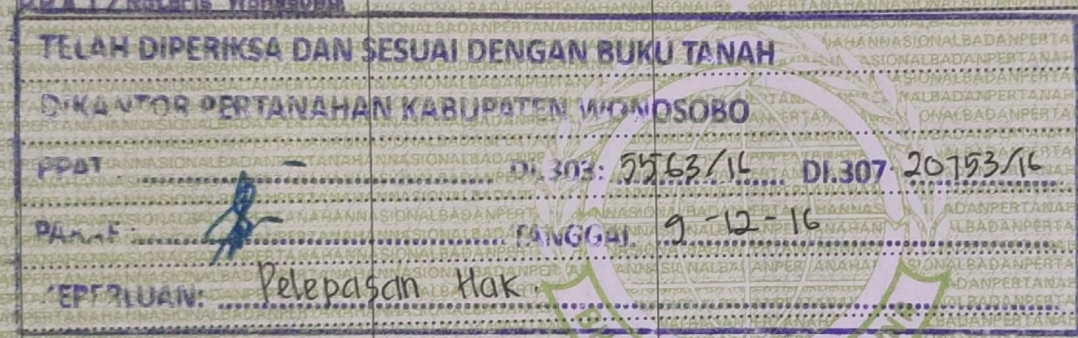 TELAH DIPERIKSA DAN SESUAI DENGAN BUKU TANAH
DIKANTOR PERTANAHAN KABUPATEN WONOSOBO
PPAT - DI.303: 5563/16 DI.307 20753/16
PARAF: TANGGAL 9-12-16
KEPERLUAN: Pelepasan Hak.